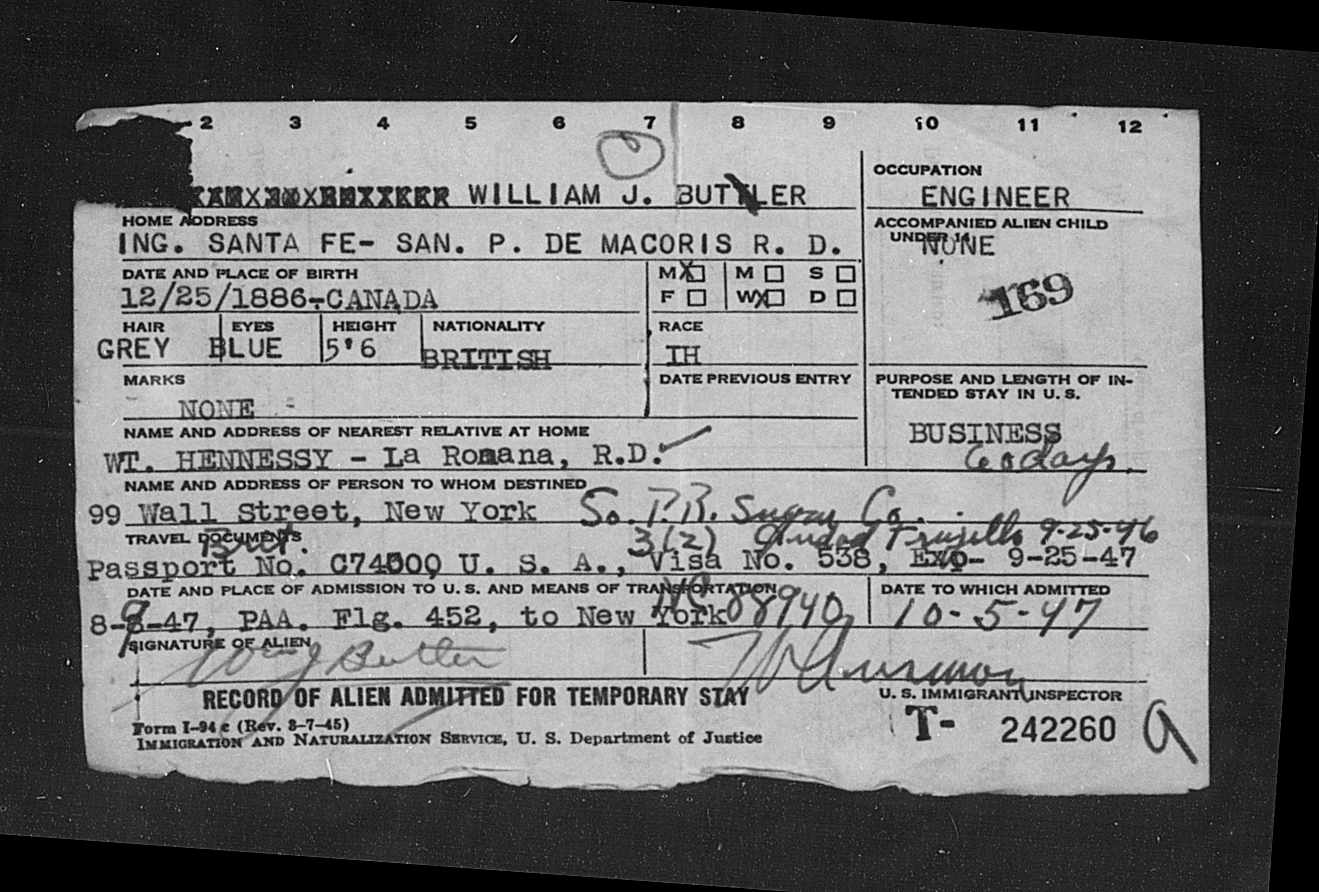 2 3 4 5 6 7 8 9 10 11 12
WILLIAM J. BUTLER
OCCUPATION
ENGINEER
HOME ADDRESS
ING. SANTA FE- SAN. P. DE MACORIS R. D.
ACCOMPANIED ALIEN CHILD
UNDER 14
NONE
DATE AND PLACE OF BIRTH
12/25/1886-CANADA
M X M S
F W X D
169
HAIR EYES HEIGHT NATIONALITY RACE
GREY BLUE 5'6 BRITISH IH
MARKS
NONE
DATE PREVIOUS ENTRY
PURPOSE AND LENGTH OF IN-
TENDED STAY IN U. S.
BUSINESS
60 days.
NAME AND ADDRESS OF NEAREST RELATIVE AT HOME
WT. HENNESSY - La Romana, R.D.
NAME AND ADDRESS OF PERSON TO WHOM DESTINED
99 Wall Street, New York So. P.R. Sugar Co.
TRAVEL DOCUMENTS
Brit. 3(2) Ciudad Trujillo 9-25-46
Passport No. C74500 U. S. A., Visa No. 538, Exp- 9-25-47
DATE AND PLACE OF ADMISSION TO U. S. AND MEANS OF TRANSPORTATION
8-9-47, PAA. Flg. 452, to New York 08940
DATE TO WHICH ADMITTED
10-5-47
SIGNATURE OF ALIEN
Wm J Butler
RECORD OF ALIEN ADMITTED FOR TEMPORARY STAY
U. S. IMMIGRANT INSPECTOR
Form I-94 c (Rev. 8-7-45)
IMMIGRATION AND NATURALIZATION SERVICE, U. S. Department of Justice
T- 242260 9